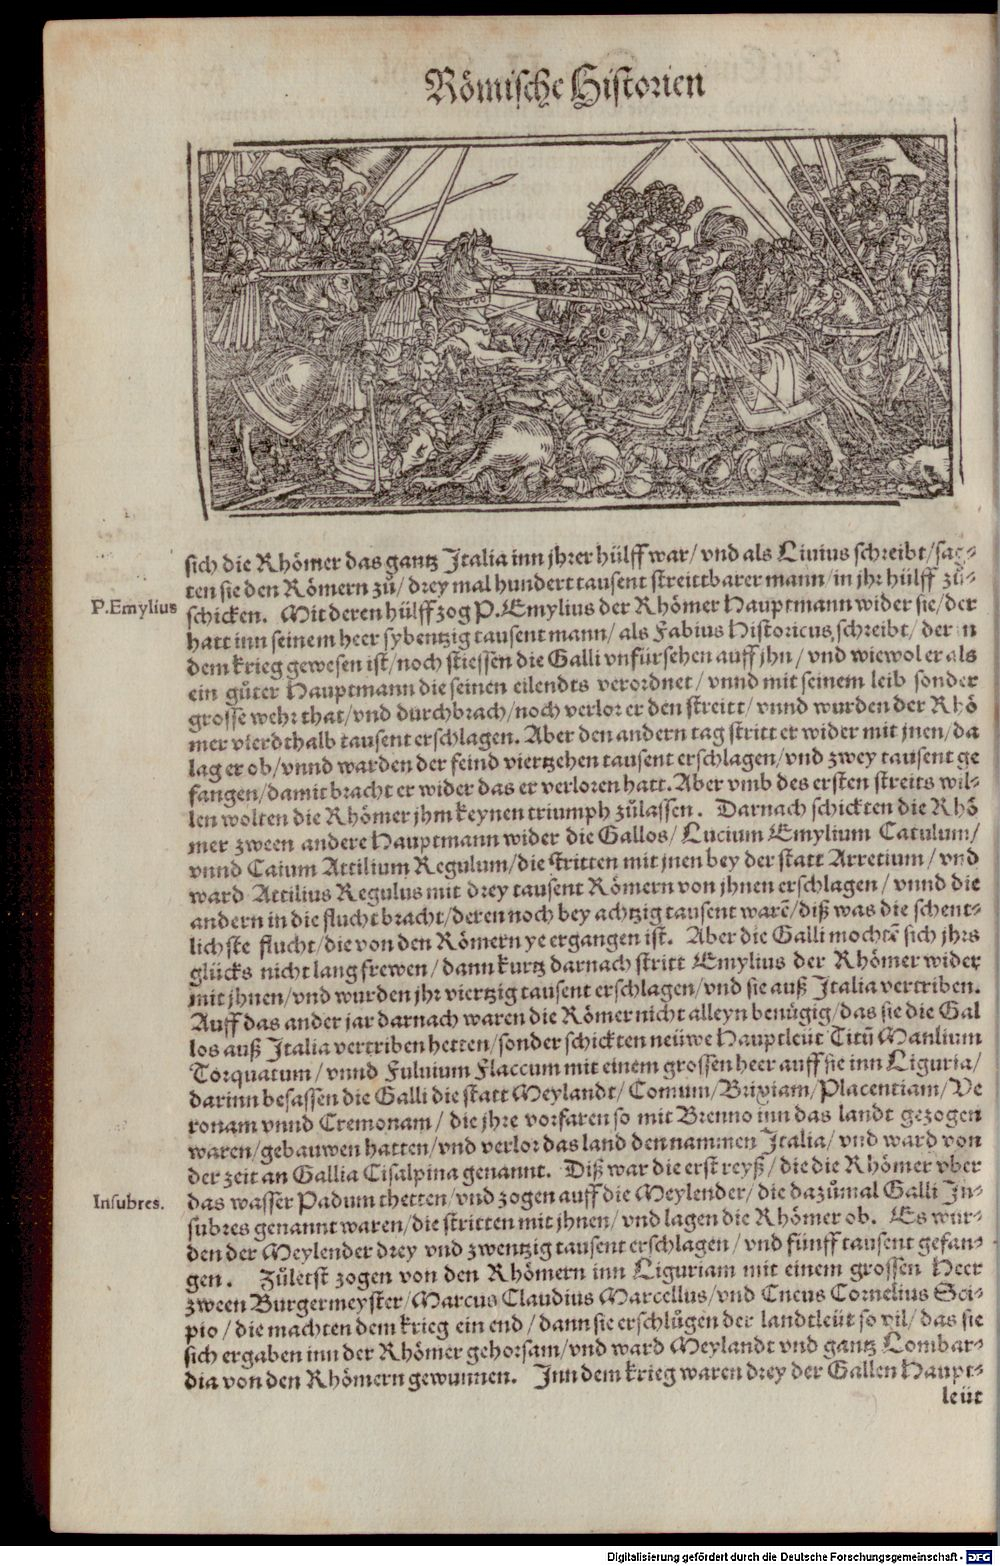 Römische Historien
sich die Rhömer das gantz Italia inn jhrer hülff war/ vnd als Liuius schreibt/ sag-
ten sie den Römern zů/ drey mal hundert tausent streittbarer mann/ in jhr hülff zů-
P.Emylius
schicken. Mit deren hülff zog P. Emylius der Rhömer Hauptmann wider sie/ der
hatt inn seinem heer sybentzig tausent mann/ als Fabius Historicus schreibt/ der in
dem krieg gewesen ist/ noch stiessen die Galli vnfürsehen auff jhn/ vnd wiewol er als
ein gůter Hauptmann die seinen eilendts verordnet/ vnnd mit seinem leib sonder
grosse wehr that/ vnd durchbrach/ noch verlor er den streitt/ vnnd wurden der Rhö
mer vierdthalb tausent erschlagen. Aber den andern tag stritt er wider mit jnen/ da
lag er ob/ vnnd warden der feind viertzehen tausent erschlagen/ vnd zwey tausent ge
fangen/ damit bracht er wider das er verloren hatt. Aber vmb des ersten streits wil-
len wolten die Rhömer jhm keynen triumph zůlassen. Darnach schickten die Rhö
mer zween andere Hauptmann wider die Gallos/ Lucium Emylium Catulum/
vnnd Caium Attilium Regulum/ die stritten mit jnen bey der statt Arretium/ vnd
ward Attilius Regulus mit drey tausent Römern von jhnen erschlagen/ vnnd die
andern in die flucht bracht/ deren noch bey achtzig tausent warē/ diß was die schent-
lichste flucht/ die von den Römern ye ergangen ist. Aber die Galli mochtē sich jhrs
glücks nicht lang frewen/ dann kurtz darnach stritt Emylius der Rhömer wider
mit jhnen/ vnd wurden jhr viertzig tausent erschlagen/ vnd sie auß Italia vertriben.
Auff das ander jar darnach waren die Römer nicht alleyn benügig/ das sie die Gal
los auß Italia vertriben hetten/ sonder schickten neüwe Hauptleüt Titū Manlium
Torquatum/ vnnd Fuluium Flaccum mit einem grossen heer auff sie inn Liguria/
darinn besassen die Galli die statt Meylandt/ Comum/ Brixiam/ Placentiam/ Ve
ronam vnnd Cremonam/ die jhre vorfaren so mit Brenno inn das landt gezogen
waren/ gebauwen hatten/ vnd verlor das land den nammen Italia/ vnd ward von
der zeit an Gallia Cisalpina genannt. Diß war die erst reyß/ die die Rhömer vber
Insubres.
das wasser Padum thetten/ vnd zogen auff die Meylender/ die dazůmal Galli In-
subres genannt waren/ die stritten mit jhnen/ vnd lagen die Rhömer ob. Es wur-
den der Meylender drey vnd zwentzig tausent erschlagen/ vnd fünff tausent gefan-
gen. Zůletst zogen von den Rhömern inn Liguriam mit einem grossen Heer
zween Burgermeyster/ Marcus Claudius Marcellus/ vnd Cneus Cornelius Sci-
pio/ die machten dem krieg ein end/ dann sie erschlůgen der landtleüt so vil/ das sie
sich ergaben inn der Rhömer gehorsam/ vnd ward Meylandt vnd gantz Lombar-
dia von den Rhömern gewunnen. Inn dem krieg waren drey der Gallen Haupt-
leüt
Digitalisierung gefördert durch die Deutsche Forschungsgemeinschaft - DFG